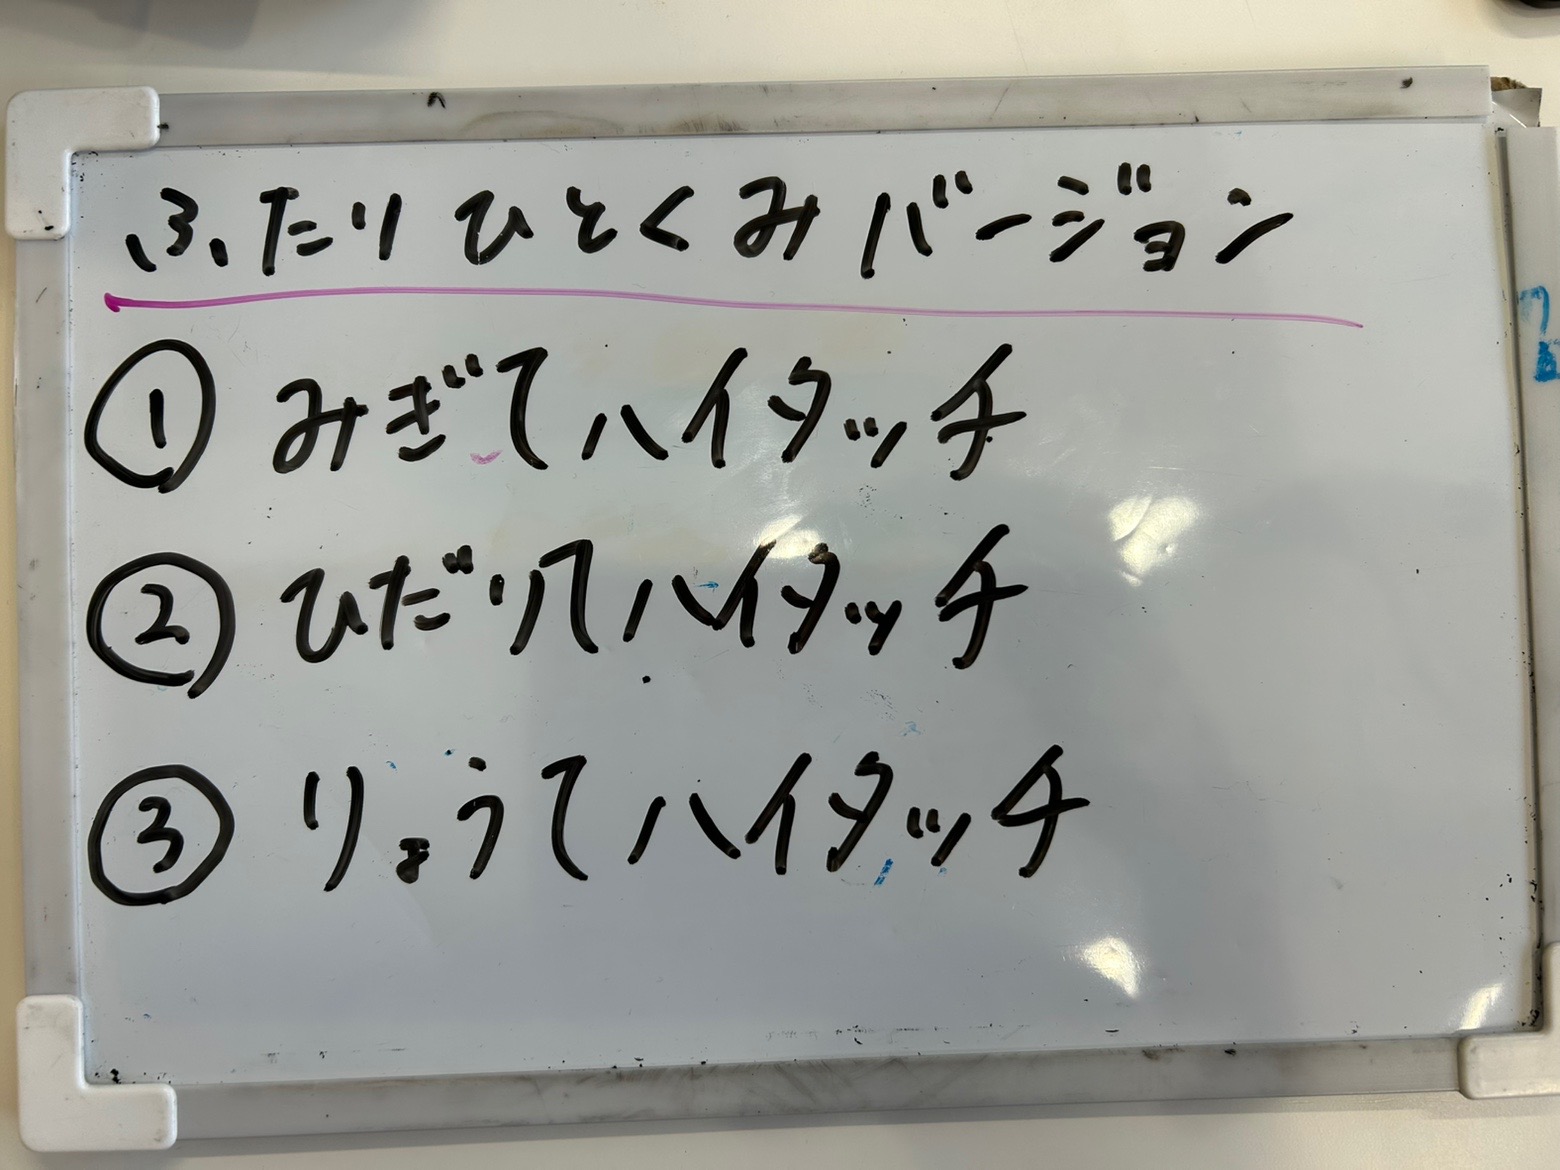 ふたりひとくみバージョン
① みぎてハイタッチ
② ひだりてハイタッチ
③ りょうてハイタッチ